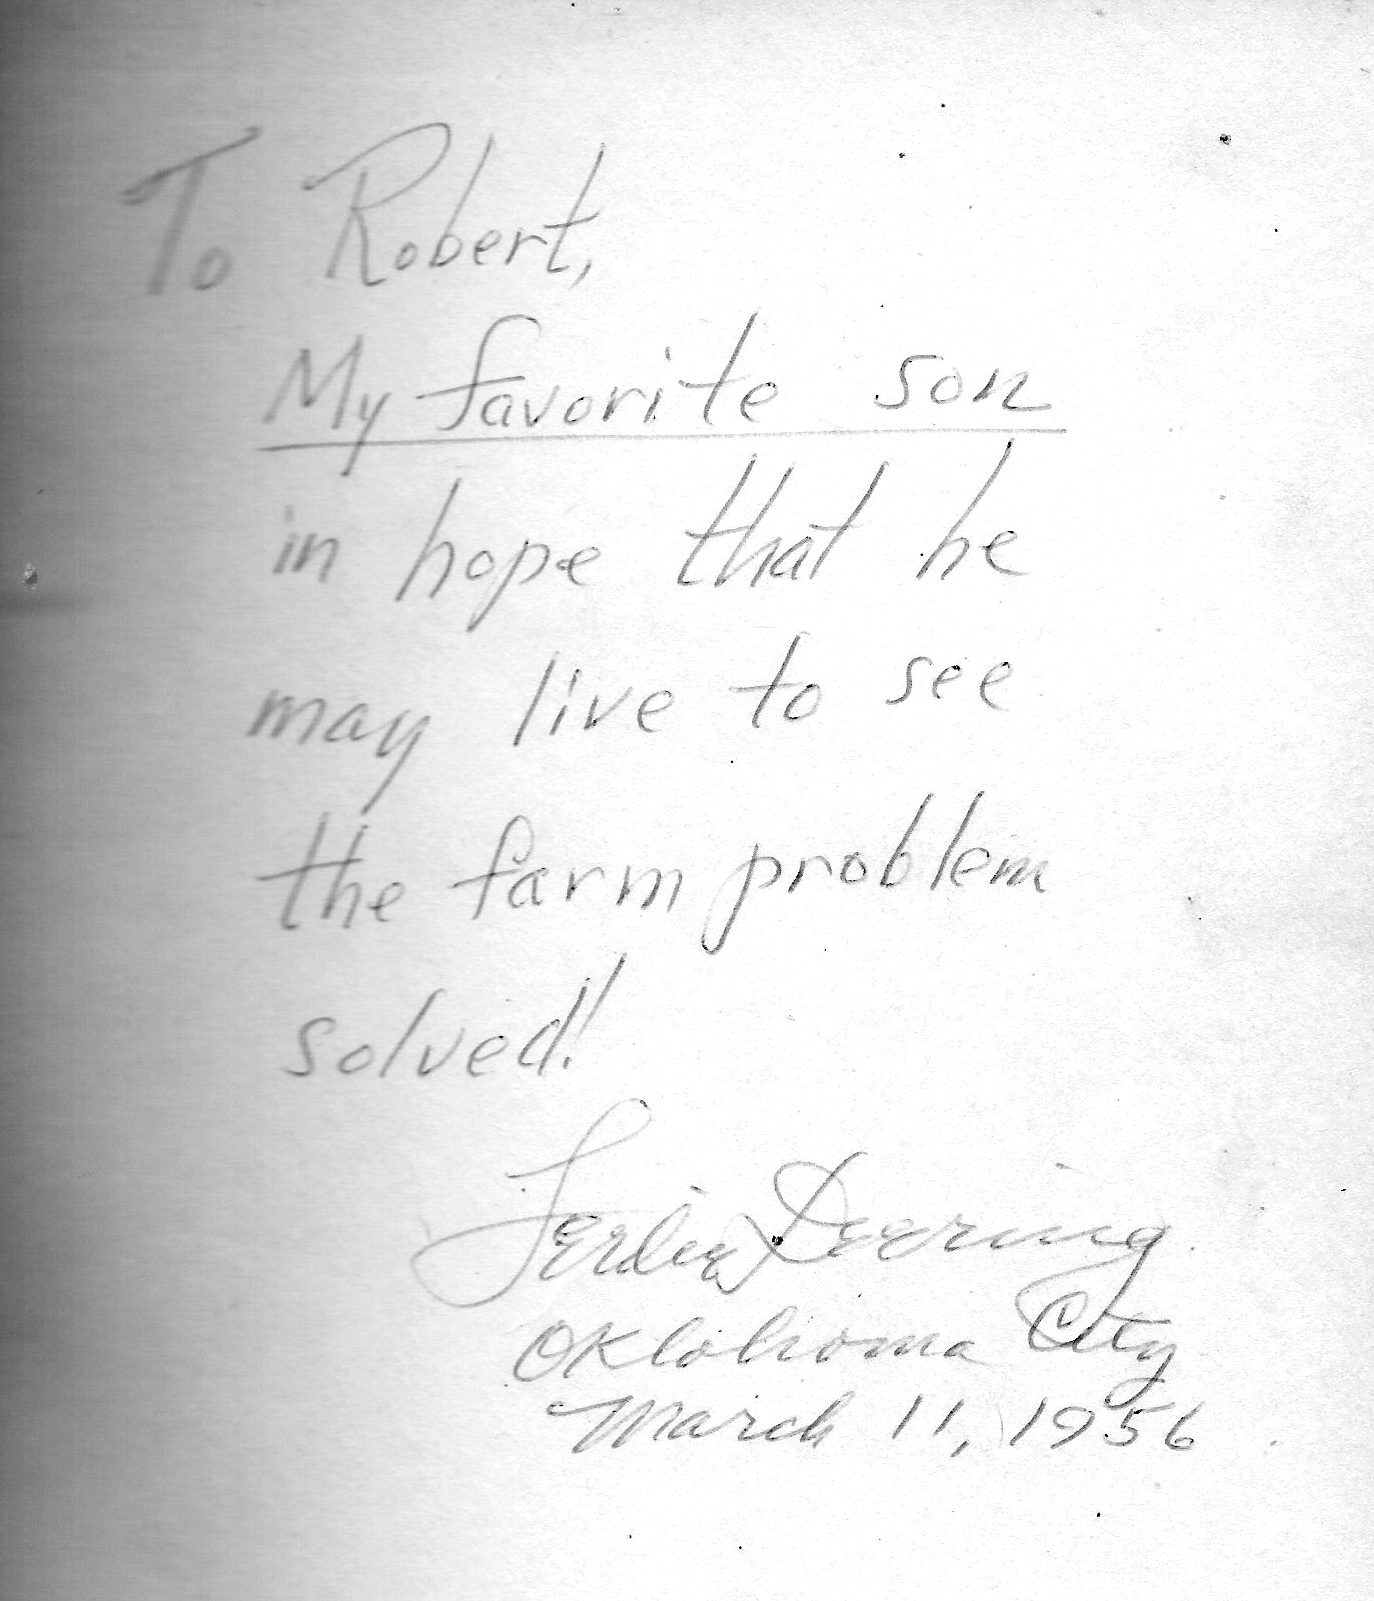 To Robert,
My favorite son
in hope that he
may live to see
the farm problem
solved!
Ferdie Deering
Oklahoma City
March 11, 1956